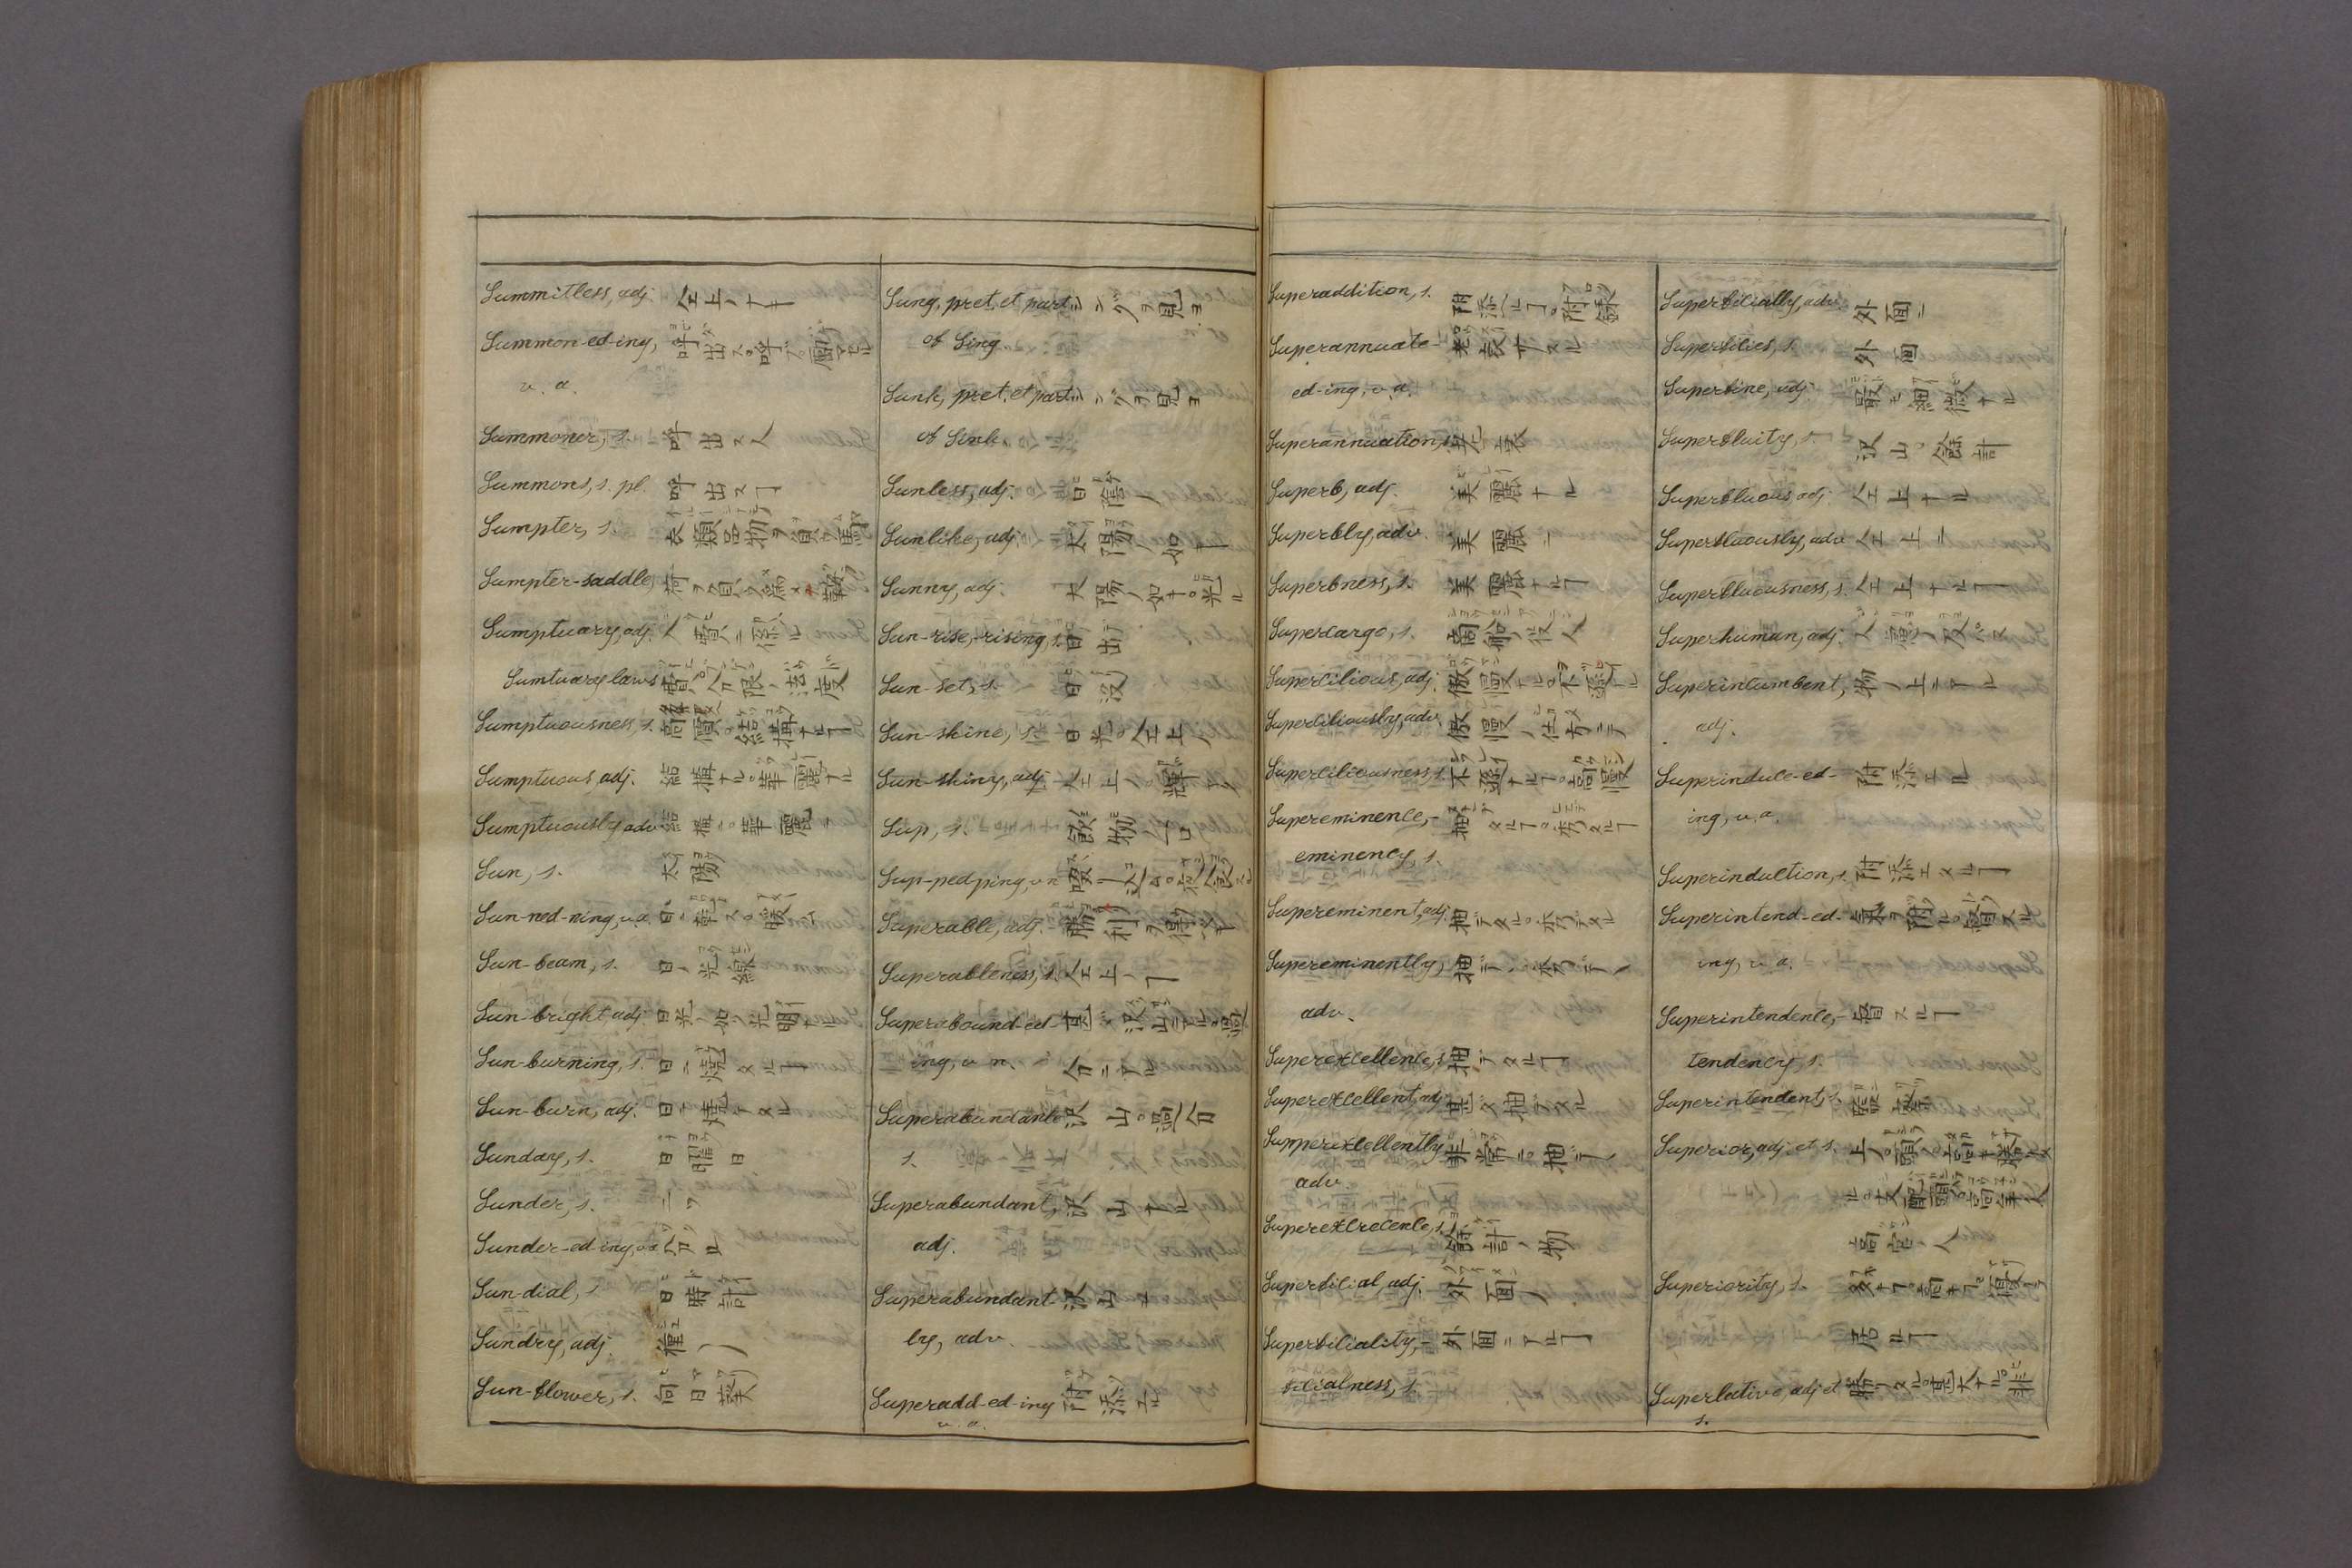 Summitless, adj. 仝上ノナキ
Summon-ed-ing, 呼出ス。呼ブ
v. a.
Summoner, s. 呼出ス人
Summons, s. pl. 呼出スヿ
Sumpter, s. 衣類器物ヲ負フ馬
Sumpter-saddle, 荷ヲ負フ為メノ鞍
Sumptuary, adj. 費ニ係ル
Sumtuary laws 費ノ分限ノ法度
Sumptuousness, s. 高價。結構ナルヿ
Sumptuous adj. 結構ナル。華麗ナル
Sumptuously adv. 結構ニ。華麗ニ
Sun, s. 太陽
Sun-ned-ning, v. a. 日ニ乾ス。暖ム
Sun-beam, s. 日ノ光線
Sun-bright adj. 日光ノ如ク光明ナル
Sun-burning, s. 日ニ燒タルヿ
Sun-burn, adj. 日ニ燒ケタル
Sunday, s. 日曜日
Sunder, s. 二ツ
Sunder-ed-ing, v. a. 分ツル
Sun-dial, s. 日時計
Sundry, adj. 種々ノ
Sun-flower, s. 向日葵
Sung, pret. et part. シングヲ見ヨ
of Sing.
Sunk, pret. et part. シンクヲ見ヨ
of Sink.
Sunless, adj. 日陰ノ
Sunlike, adj. 太陽ノ如キ
Sunny, adj. 太陽ノ如キ。光ル
Sun-rise, -rising, s. 日出
Sun-set, s. 日没
Sun-shine, s. 日光。仝上ノ
Sun-shiny, adj. 仝上ノ。輝ク
Sup, s. 飲物一口
Sup-ped ping, v. n.
Superable, adj. 勝利ヲ得ベキ
Superableness, s. 仝上ノヿ
Superabound-ed- 甚ダ沢山ニアル。過
ing, v. n. 分ニアル
Superabundance 沢山。過分
s.
Superabundant, 沢山ナル
adj.
Superabundant- 沢山ニ
ly, adv.
Superadd-ed-ing 附添ル
v. a.
Superaddition, s. 附添ルヿ。附録
Superannuate- 老衰サスル
ed-ing, v. a.
Superannuation, s. 老衰
Superb, adj. 美麗ナル
Superbly, adv. 美麗ニ
Superbness, s. 美麗ナルヿ
Supercargo, s. 商船ノ役人
Supercilious, adj. 傲慢ナル。不遜ナル
Superciliously, adv. 傲慢ノ仕方ニテ
Superciliousness, s. 不遜ナルヿ。高慢
Supereminence,- 抽デタルヿ。秀タルヿ
eminency, s.
Supereminent, adj. 抽デタル。秀デタル
Supereminently, 抽デヽ。秀デヽ
adv.
Superexcellence, s. 抽デタルヿ
Superexcellent, adj. 甚ダ抽デタル
Supperexcellently 非常ニ。抽デヽ
adv.
Superexcrecence, s. 餘計ノ物
Superficial, adj. 外面ノ
Superficiality,- 外面ニアルヿ
ficialness, s.
Superficially, adv. 外面ニ
Superficies, s. 外面
Superfine, adj. 最モ細微ナル
Superfluity, s. 沢山。餘計
Superfluous adj. 仝上ナル
Superfluously, adv. 仝上ニ
Superfluousness, s. 仝上ナルヿ
Superhuman, adj.
Superincumbent, 物ノ上ニアル
adj.
Superinduce-ed- 附添エル
ing, v. a.
Superinduction, s. 附添エタルヿ
Superintend-ed-
ing, v. a.
Superintendence,- 督スルヿ
tendency, s.
Superintendent, s. 監察
Superior, adj. et s.
高官ノ人
Superiority, s.
居ルヿ
Superlative, adj et
s.